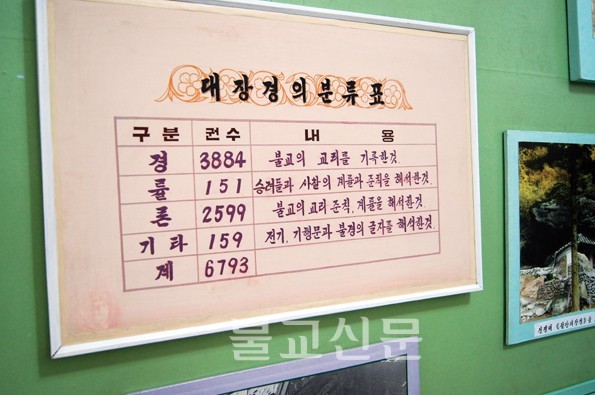 대장경의분류표
구분 권수 내용
경 3884 불교의 교리를 기록한것.
률 151 승려들과 사찰의 계률과 준칙을 해석한것.
론 2599 불교의 교리·준칙, 계률을 해석한것.
기타 159 전기, 기행문과 불경의 글자를 해석한것.
계 6793
불교신문